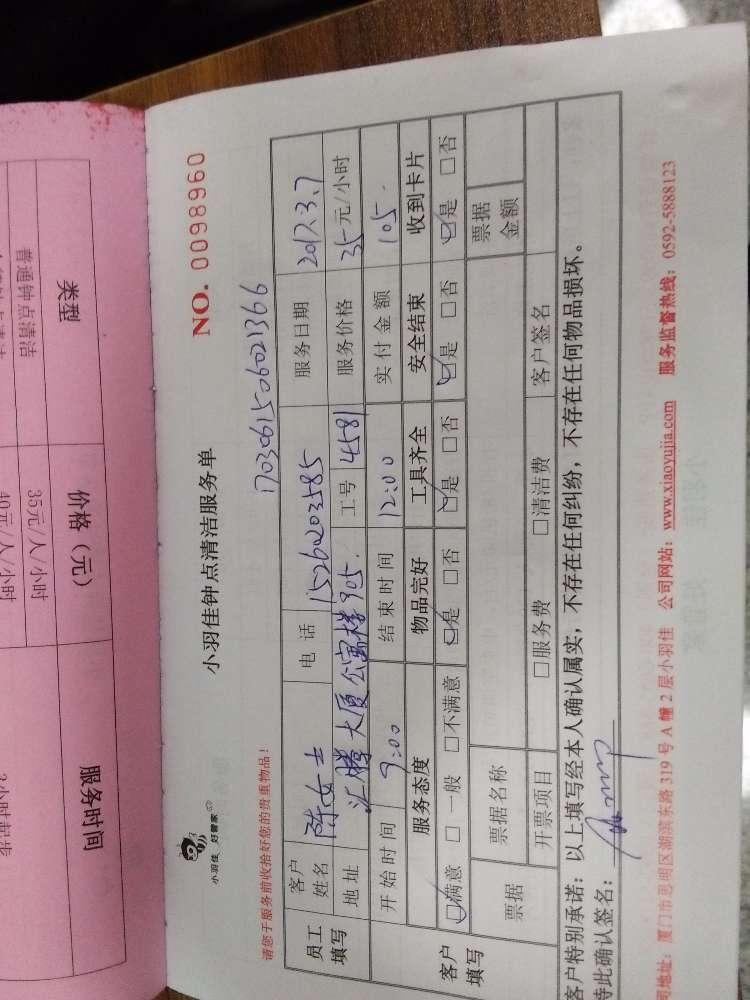 小羽佳 好管家
小羽佳钟点清洁服务单
NO. 0098960
请您于服务前收拾好您的贵重物品！
1703061506021366
员工填写
客户姓名 陈女士 电话 15260203585 服务日期 2017.3.7
地址 汇腾大厦公寓楼905. 工号 4581 服务价格 35元/小时
开始时间 9:00 结束时间 12:00 实付金额 105.
客户填写
服务态度 物品完好 工具齐全 安全结束 收到卡片
□满意 □一般 □不满意 □是 □否 □是 □否 □是 □否 □是 □否
票据 票据名称 票据金额
开票项目 □服务费 □清洁费 客户签名
客户特别承诺：以上填写经本人确认属实，不存在任何纠纷，不存在任何物品损坏。
特此确认签名：
司地址：厦门市思明区湖滨东路 319 号 A 幢 2 层小羽佳 公司网站：www.xiaoyujia.com 服务监督热线：0592-5888123
类型 价格（元） 服务时间
普通钟点清洁 35元/人/小时
40元/人/小时